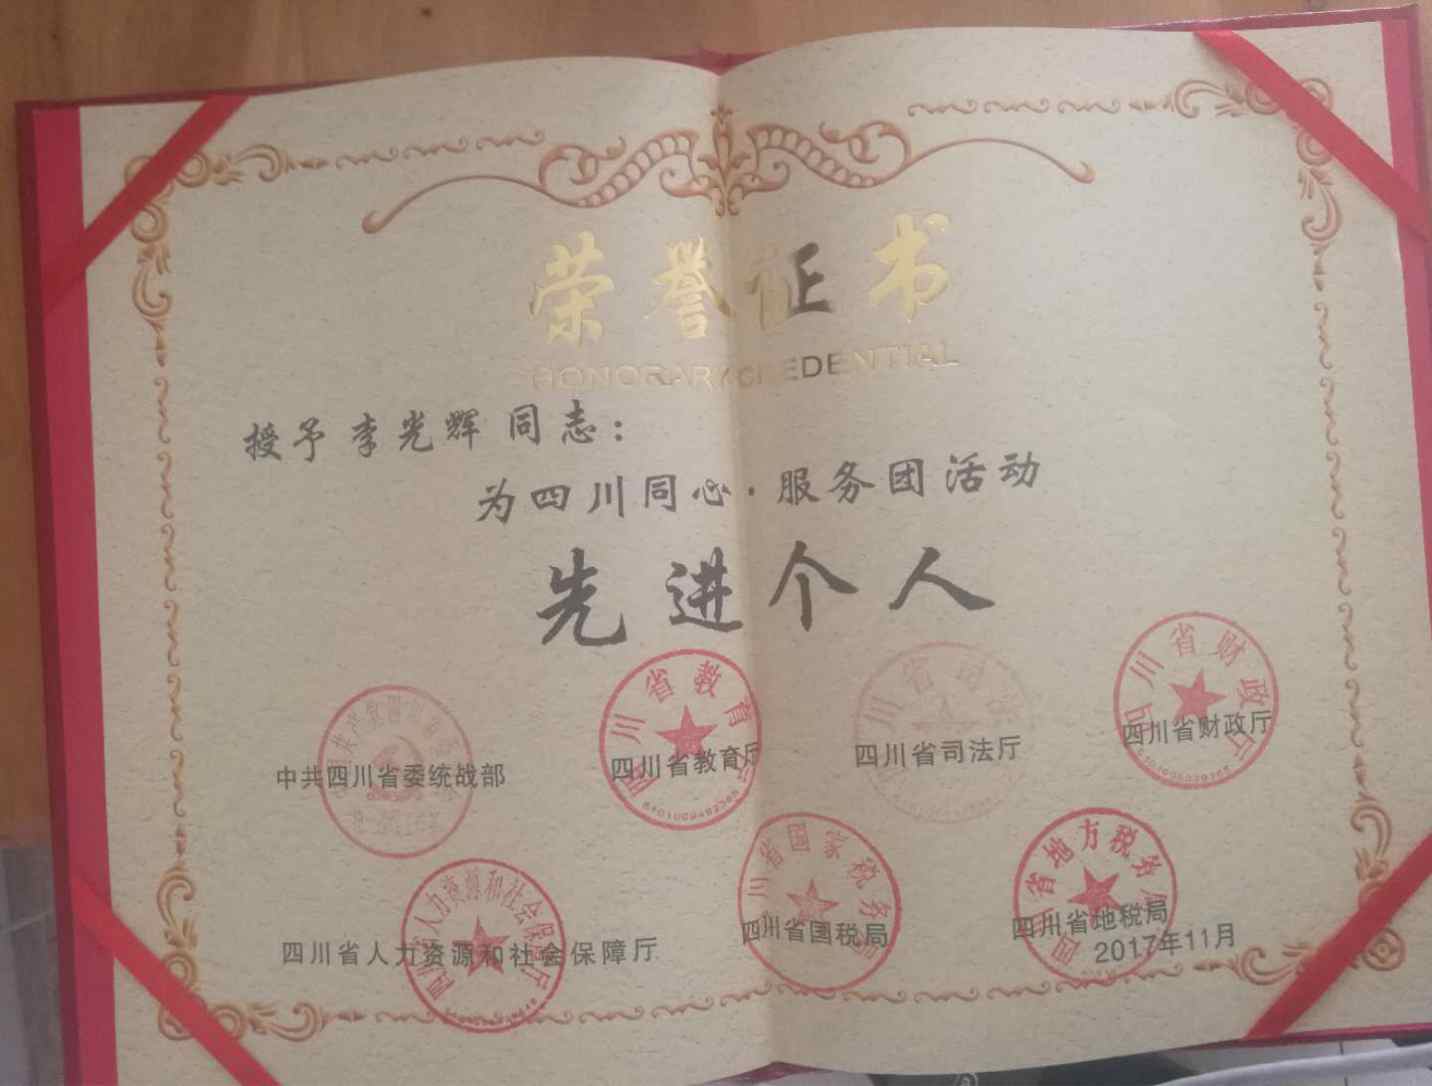 荣誉证书
HONORARY CREDENTIAL
授予李光辉同志：
为四川同心·服务团活动
先进个人
中共四川省委统战部
四川省教育厅
四川省司法厅
四川省财政厅
四川省人力资源和社会保障厅
四川省国税局
四川省地税局
2017年11月
四川省教育厅
四川省财政厅
四川省人力资源和社会保障厅
四川省国家税务局
四川省地方税务局